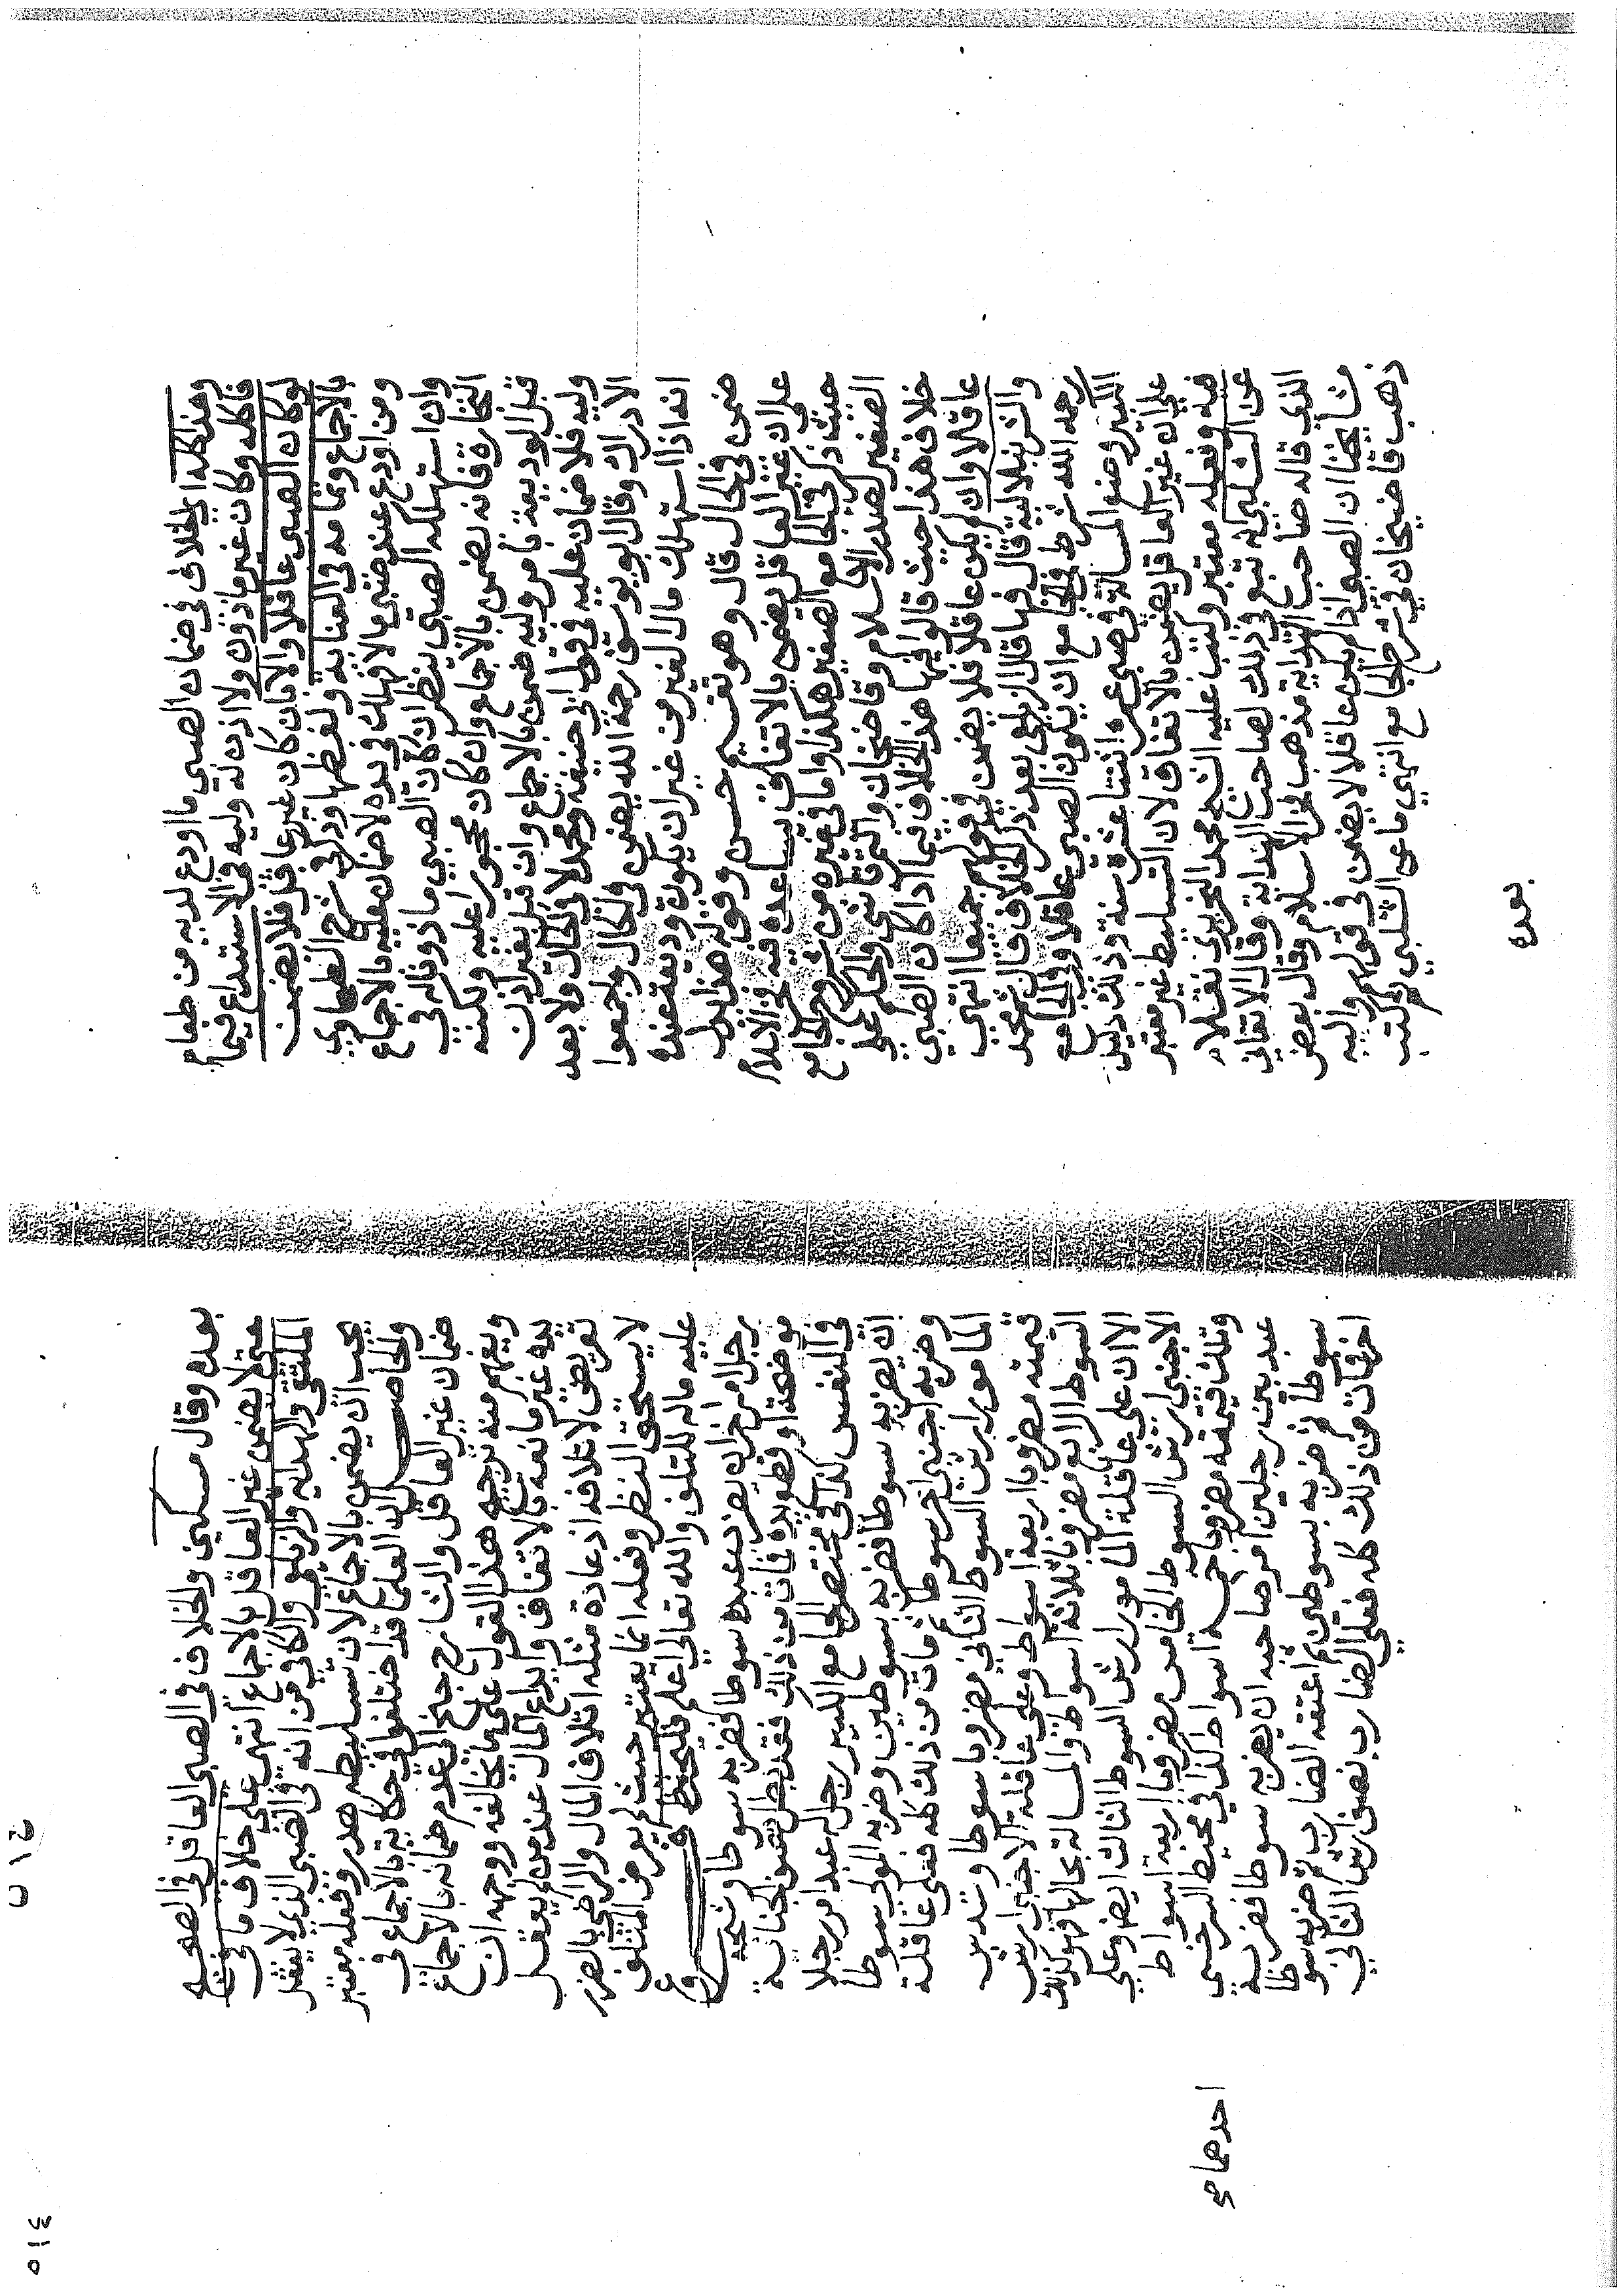 وهذا كما اي الخلاف في ضمان الصبي ما اودع لديه من طعام
فاكله وكان غير ماذون ولا اذن له وليه في الاستيداع فيما
لو كان الصبي عاقلا والا بان كان غير عاقل فلا يضمن
بالاجماع وتمامه في العناية ولفظها وذكر في شرح الطحاوي
ومن اودع عند صبي مالا فهلك في يده لا ضمان عليه بالاجماع
وان استهلكه الصبي ينظر ان كان الصبي ماذونا له في
التجارة فانه يضمن بالاجماع وان كان محجورا عليه ولكنه
قبل الوديعة بامر وليه ضمن بالاجماع وان قبل بغير اذن
وليه فلا ضمان عليه في قول ابي حنيفة ومحمد لا في الحال ولا بعد
الادراك وقال ابو يوسف رحمة الله يضمن في الحال واجمعوا
انه اذا استهلك مال الغير من غير ان يكون وديعة عنده
ضمن في الحال قال وهو تقسيم حسن وقوله هذا يدل
على ان غير العاقل يضمن بالاتفاق يساعده فيه فخر الاسلام
حيث ذكر في الجامع الصغير هكذا واما في غيره من شروح الجامع
الصغير لصدر الاسلام وقاضيخان والتمرتاشي والحكم على
خلاف هذا حيث قالوا فيها هذا الخلاف فيما اذا كان الصبي
عاقلا وان لم يكن عاقلا فلا يضمن في قولهم جميعا انتهى
والشرنبلالية قال فيها قال الزيلعي بعد ذكر الخلاف قال محمد
رحمه الله شرط في الجامع ان يكون الصبي عاقلا وفي الجامع
الكبير وضع المسالة في صبي عمره اثنتا عشرة سنة وذلك دليل
على ان غير العاقل يضمن بالاتفاق لان التسليط غير معتبر
فيه وفعله معتبر وكتب عليه الشيخ محمد الحريري نقلا
عن الشلبي انه تبع في ذلك لصاحب الهداية وقال الاتقاني
الذي قاله صاحب الهداية مذهب فخر الاسلام وقال بعض
مشايخنا ان الصبي اذا لم يكن عاقلا لا يضمن في قولهم واليه
ذهب قاضيخان في شرح الجامع انتهى ما عن الشلبي ثم كتب
بعده
بعده وقال مسكين والخلاف في الصبي العاقل في الصحيح
حتى لا يضمن غير العاقل بالاجماع انتهى على خلاف ما في متن
الملتقى والهداية والزيلعي والكافي من انه في الصبي الذي لا يعقل
يجب ان يضمن بالاجماع لان تسليطه هدر وفعله معتبر
والحاصل ان العلماء قد اختلفوا في حكاية بالاجماع في
ضمان غير العاقل والشارح جنح الى عدم ضمانه بالاجماع
ويفهم منه ترجيح هذا القول على ما يخالفه ووجهه ان
يده غير مانعة بالاتفاق وايداع المال عند من لم يعقل
تعريض لاتلافه اذ عادة مثله اتلاف المال والراضي بالضرر
لا يستحق النظر وفعله انما يعتبر حيث لم يعرض المتلف
عليه ماله للتلف والله تعالى اعلم فليحفظ فروع
رجل امر اخر ان يضرب عبده سوطا فضربه سوطا وشجه
موضحة او قطع يده فمات من ذلك فقد بطل نصف الجناية
في النفس كذا في مختصر الجامع الكبير رجل عبدا مر رجلا
ان يضربه سوطا فضربه سوطين وضربه المولى سوطا
وضربه اجنبي اخر سوطا ثم مات من ذلك كله فعلى عاقلة
المامور ارش السوط الثاني مضروبا سوطا وسدس
قيمته مضروبا اربعة اسواط وعلى عاقلة الاجنبي ارش
السوط الرابع مضروبا ثلاثة اسواط والمسالة بحالها فهو كذلك
الا ان على عاقلة المامور ارش السوط الثالث ايضا وعلى
الاجنبي ارش السوط الخامس مضروبا اربعة اسواط
وثلث قيمته مضروبا خمسة اسواط كذا في محيط السرخسي
عبد بين رجلين امر صاحبه ان يضربه سوطا فضربه
سوطا ثم ضربه بسوطين ثم اعتقه الضارب ثم ضربه سوطا
اخر فمات من ذلك كله فعلى الضارب نصف ارش الثاني
احدهما ص
٥١٤